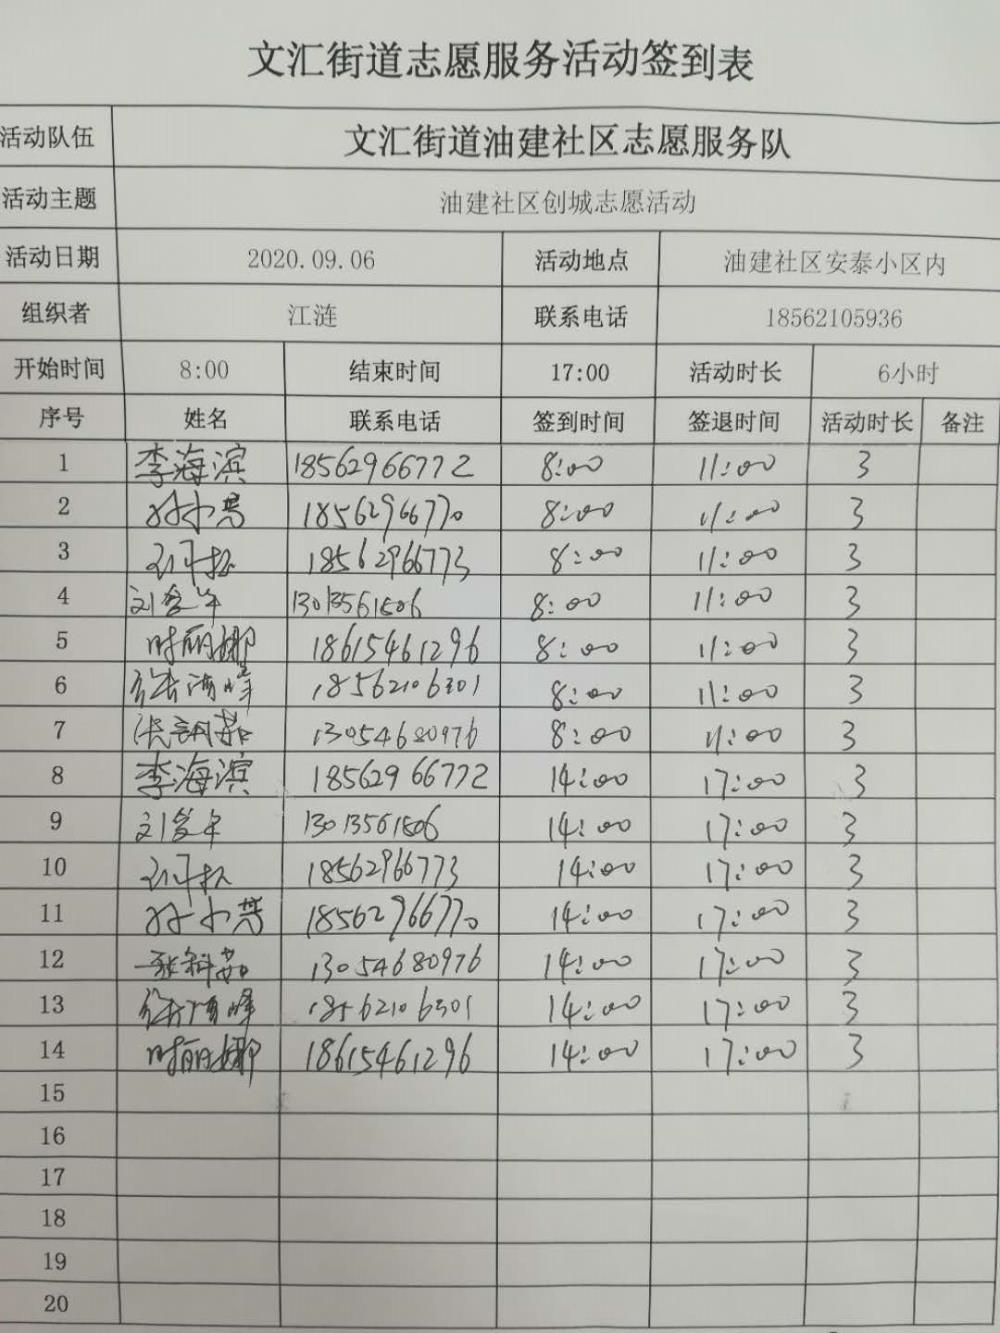 文汇街道志愿服务活动签到表
活动队伍 文汇街道油建社区志愿服务队
活动主题 油建社区创城志愿活动
活动日期 2020.09.06 活动地点 油建社区安泰小区内
组织者 江涟 联系电话 18562105936
开始时间 8:00 结束时间 17:00 活动时长 6小时
序号 姓名 联系电话 签到时间 签退时间 活动时长 备注
1 李海滨 18562966772 8:00 11:00 3
2 孙小芳 18562966770 8:00 11:00 3
3 18562966773 8:00 11:00 3
4 13013561506 8:00 11:00 3
5 时丽娜 18615461296 8:00 11:00 3
6 徐海峰 18562106301 8:00 11:00 3
7 13054680976 8:00 11:00 3
8 李海滨 18562966772 14:00 17:00 3
9 13013561506 14:00 17:00 3
10 18562966773 14:00 17:00 3
11 孙小芳 18562966770 14:00 17:00 3
12 13054680976 14:00 17:00 3
13 徐海峰 18562106301 14:00 17:00 3
14 时丽娜 18615461296 14:00 17:00 3
15
16
17
18
19
20